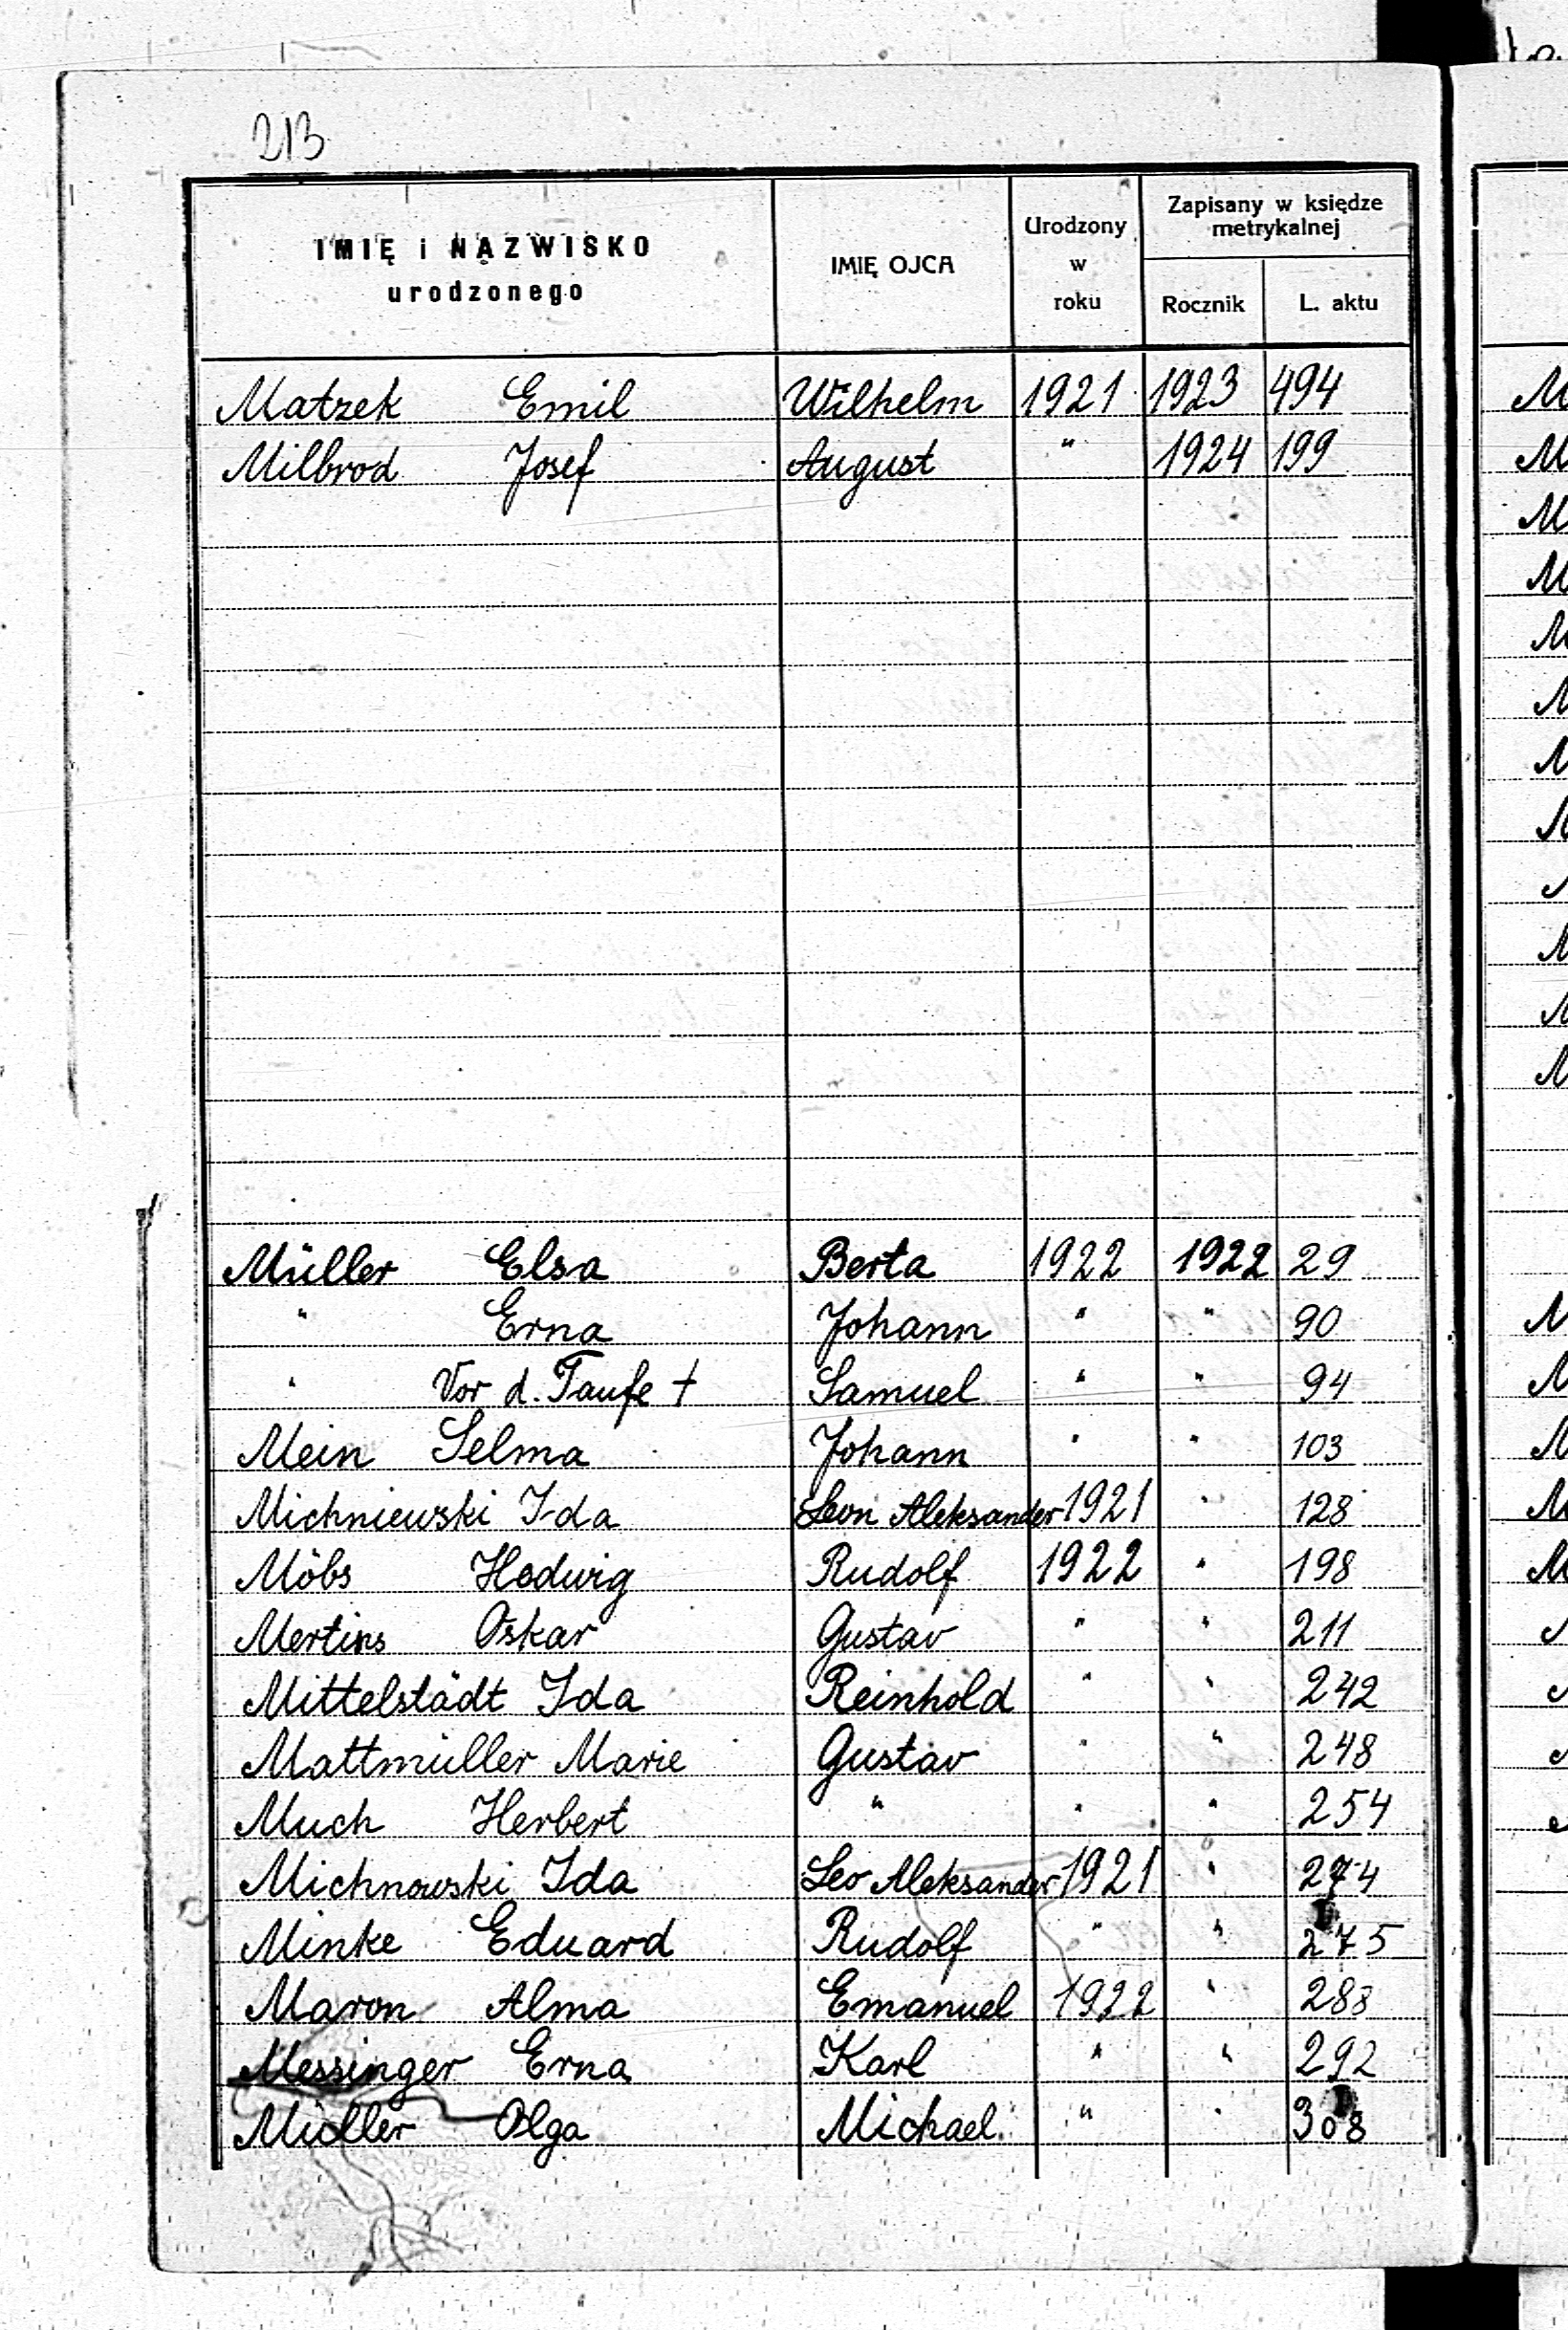 213
IMIĘ i NAZWISKO urodzonego IMIĘ OJCA Urodzony w roku Zapisany w księdze metrykalnej Rocznik L. aktu
Matzek Emil Wilhelm 1921 1923 494
Milbrod Josef August " 1924 199
Müller Elsa Berta 1922 1922 29
" Erna Johann " " 90
" Vor d. Taufe † Samuel " " 94
Mein Selma Johann " " 103
Michniewski Ida Leon Aleksander 1921 " 128
Möbs Hedwig Rudolf 1922 " 198
Mertins Oskar Gustav " " 211
Mittelstädt Ida Reinhold " " 242
Mattmüller Marie Gustav " " 248
Much Herbert " " " 254
Michnowski Ida Leo Aleksander 1921 " 274
Minke Eduard Rudolf " " 275
Maron Alma Emanuel 1922 " 288
Messinger Erna Karl " " 292
Olga Michael " " 308